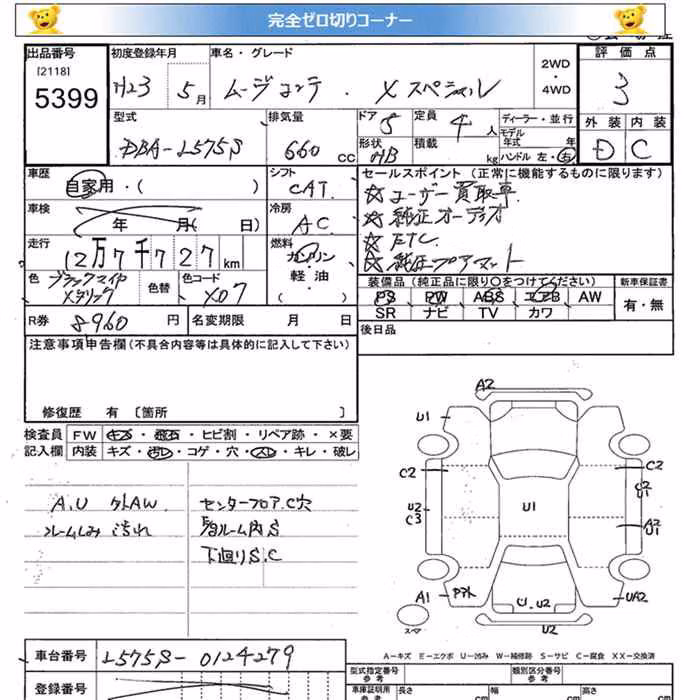 完全ゼロ切りコーナー
出品番号 初度登録年月 車名・グレード 2WD・4WD 評価点
[2118]
5399 H23 5月 ムーヴコンテ Xスペシャル 3
型式 排気量 ドア 定員 ディーラー・並行 外装 内装
DBA-L575S 660 CC 5 4人 モデル年式 年 D C
形状 HB 積載 kg ハンドル 左・右
車歴 シフト セールスポイント(正常に機能するものに限ります)
自家用・( ) CAT ☆ユーザー買取車
車検 冷房 ☆純正オーディオ
年 月( 日) AC ☆ETC
走行 燃料 ☆純正フロアマット
12万7千727km ガソリン・軽・油( )
色 色替 色コード 装備品(純正品に限り○をつけてください) 新車保証書
ブラックマイカメタリック X07 PS PW ABS エアB AW 有・無
SR ナビ TV カワ
R券 8960円 名変期限 月 日 後日品
注意事項申告欄(不具合内容等は具体的に記入して下さい)
修復歴 有 〔箇所 〕
検査員 FW キズ・飛石・ヒビ割・リペア跡・×要
記入欄 内装 キズ・汚レ・コゲ・穴・スレ・キレ・破レ
A.U 外AW センターフロアC穴
汚れ ルーム内S
下廻りS.C
A2
U1
C2 C2
C2
U1
U2 U1
C3
A2
U1
A1 U1 U2 UA2
スペア U2
A-キズ E-エクボ U-凹み W-補修跡 S-サビ C-腐食 XX-交換済
車台番号 L575S-0124279 型式指定番号 参考 類別区分番号 参考
登録番号 車庫証明用 参考 長さ cm 幅 cm 高さ cm